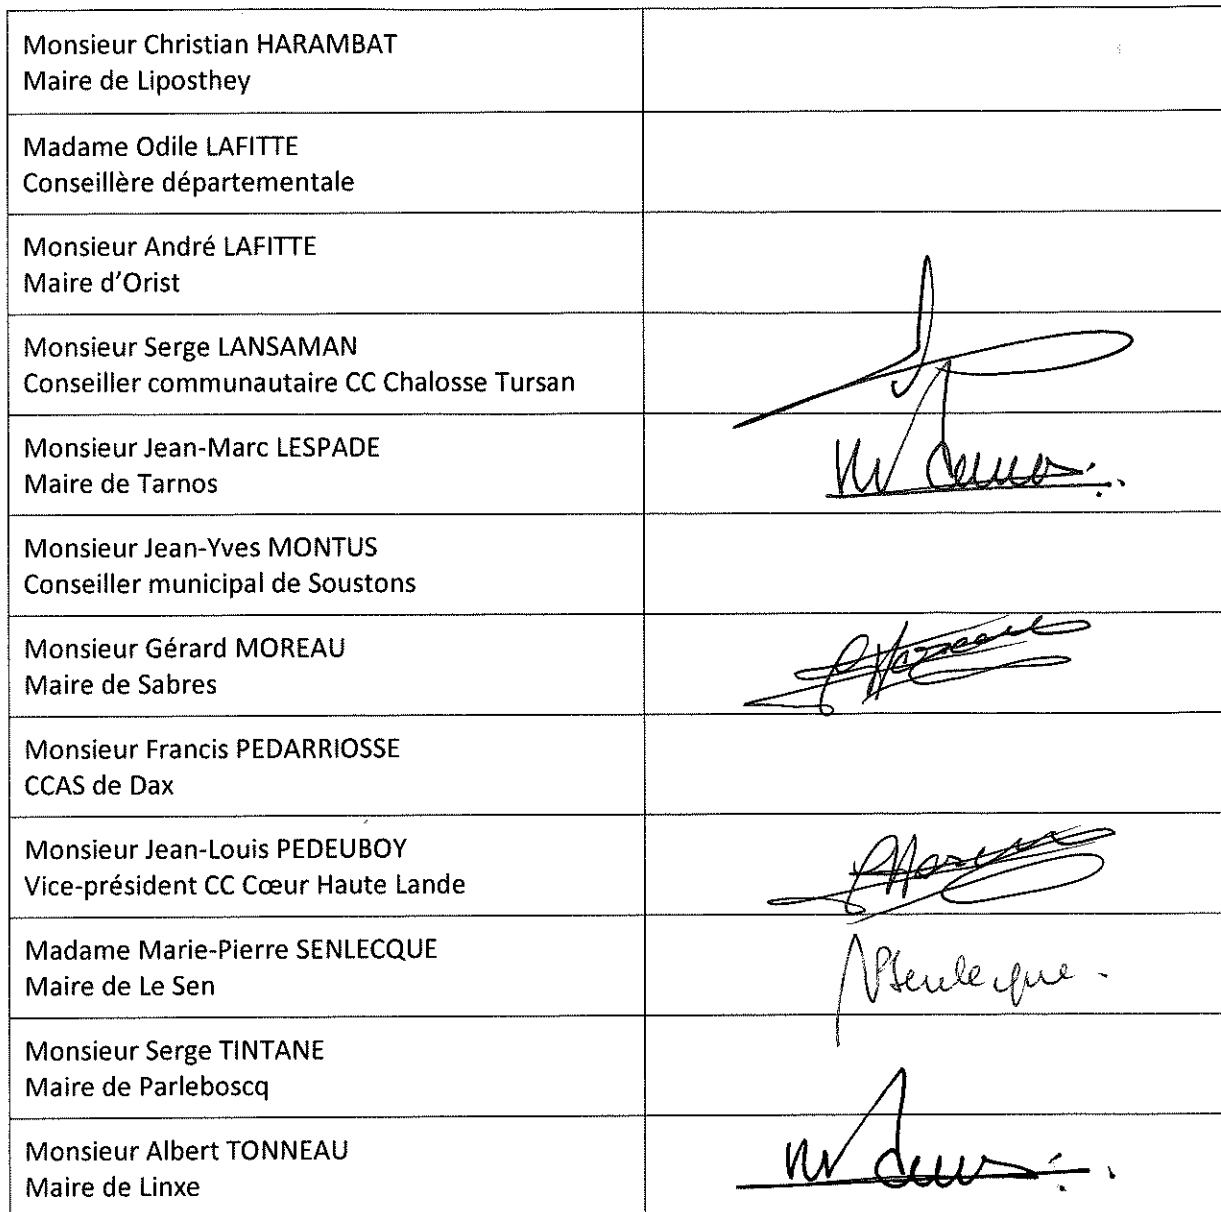 Monsieur Christian HARAMBAT
Maire de Liposthey
Madame Odile LAFITTE
Conseillère départementale
Monsieur André LAFITTE
Maire d'Orist
Monsieur Serge LANSAMAN
Conseiller communautaire CC Chalosse Tursan
Monsieur Jean-Marc LESPADE
Maire de Tarnos
Monsieur Jean-Yves MONTUS
Conseiller municipal de Soustons
Monsieur Gérard MOREAU
Maire de Sabres
Monsieur Francis PEDARRIOSSE
CCAS de Dax
Monsieur Jean-Louis PEDEUBOY
Vice-président CC Cœur Haute Lande
Madame Marie-Pierre SENLECQUE
Maire de Le Sen
Monsieur Serge TINTANE
Maire de Parleboscq
Monsieur Albert TONNEAU
Maire de Linxe